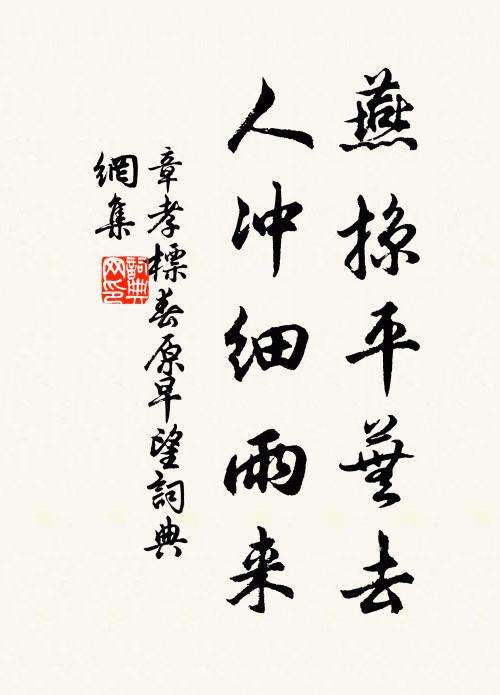 燕掠平蕪去
人冲细雨来
章孝標春原早望詞典
網集
詞典网印